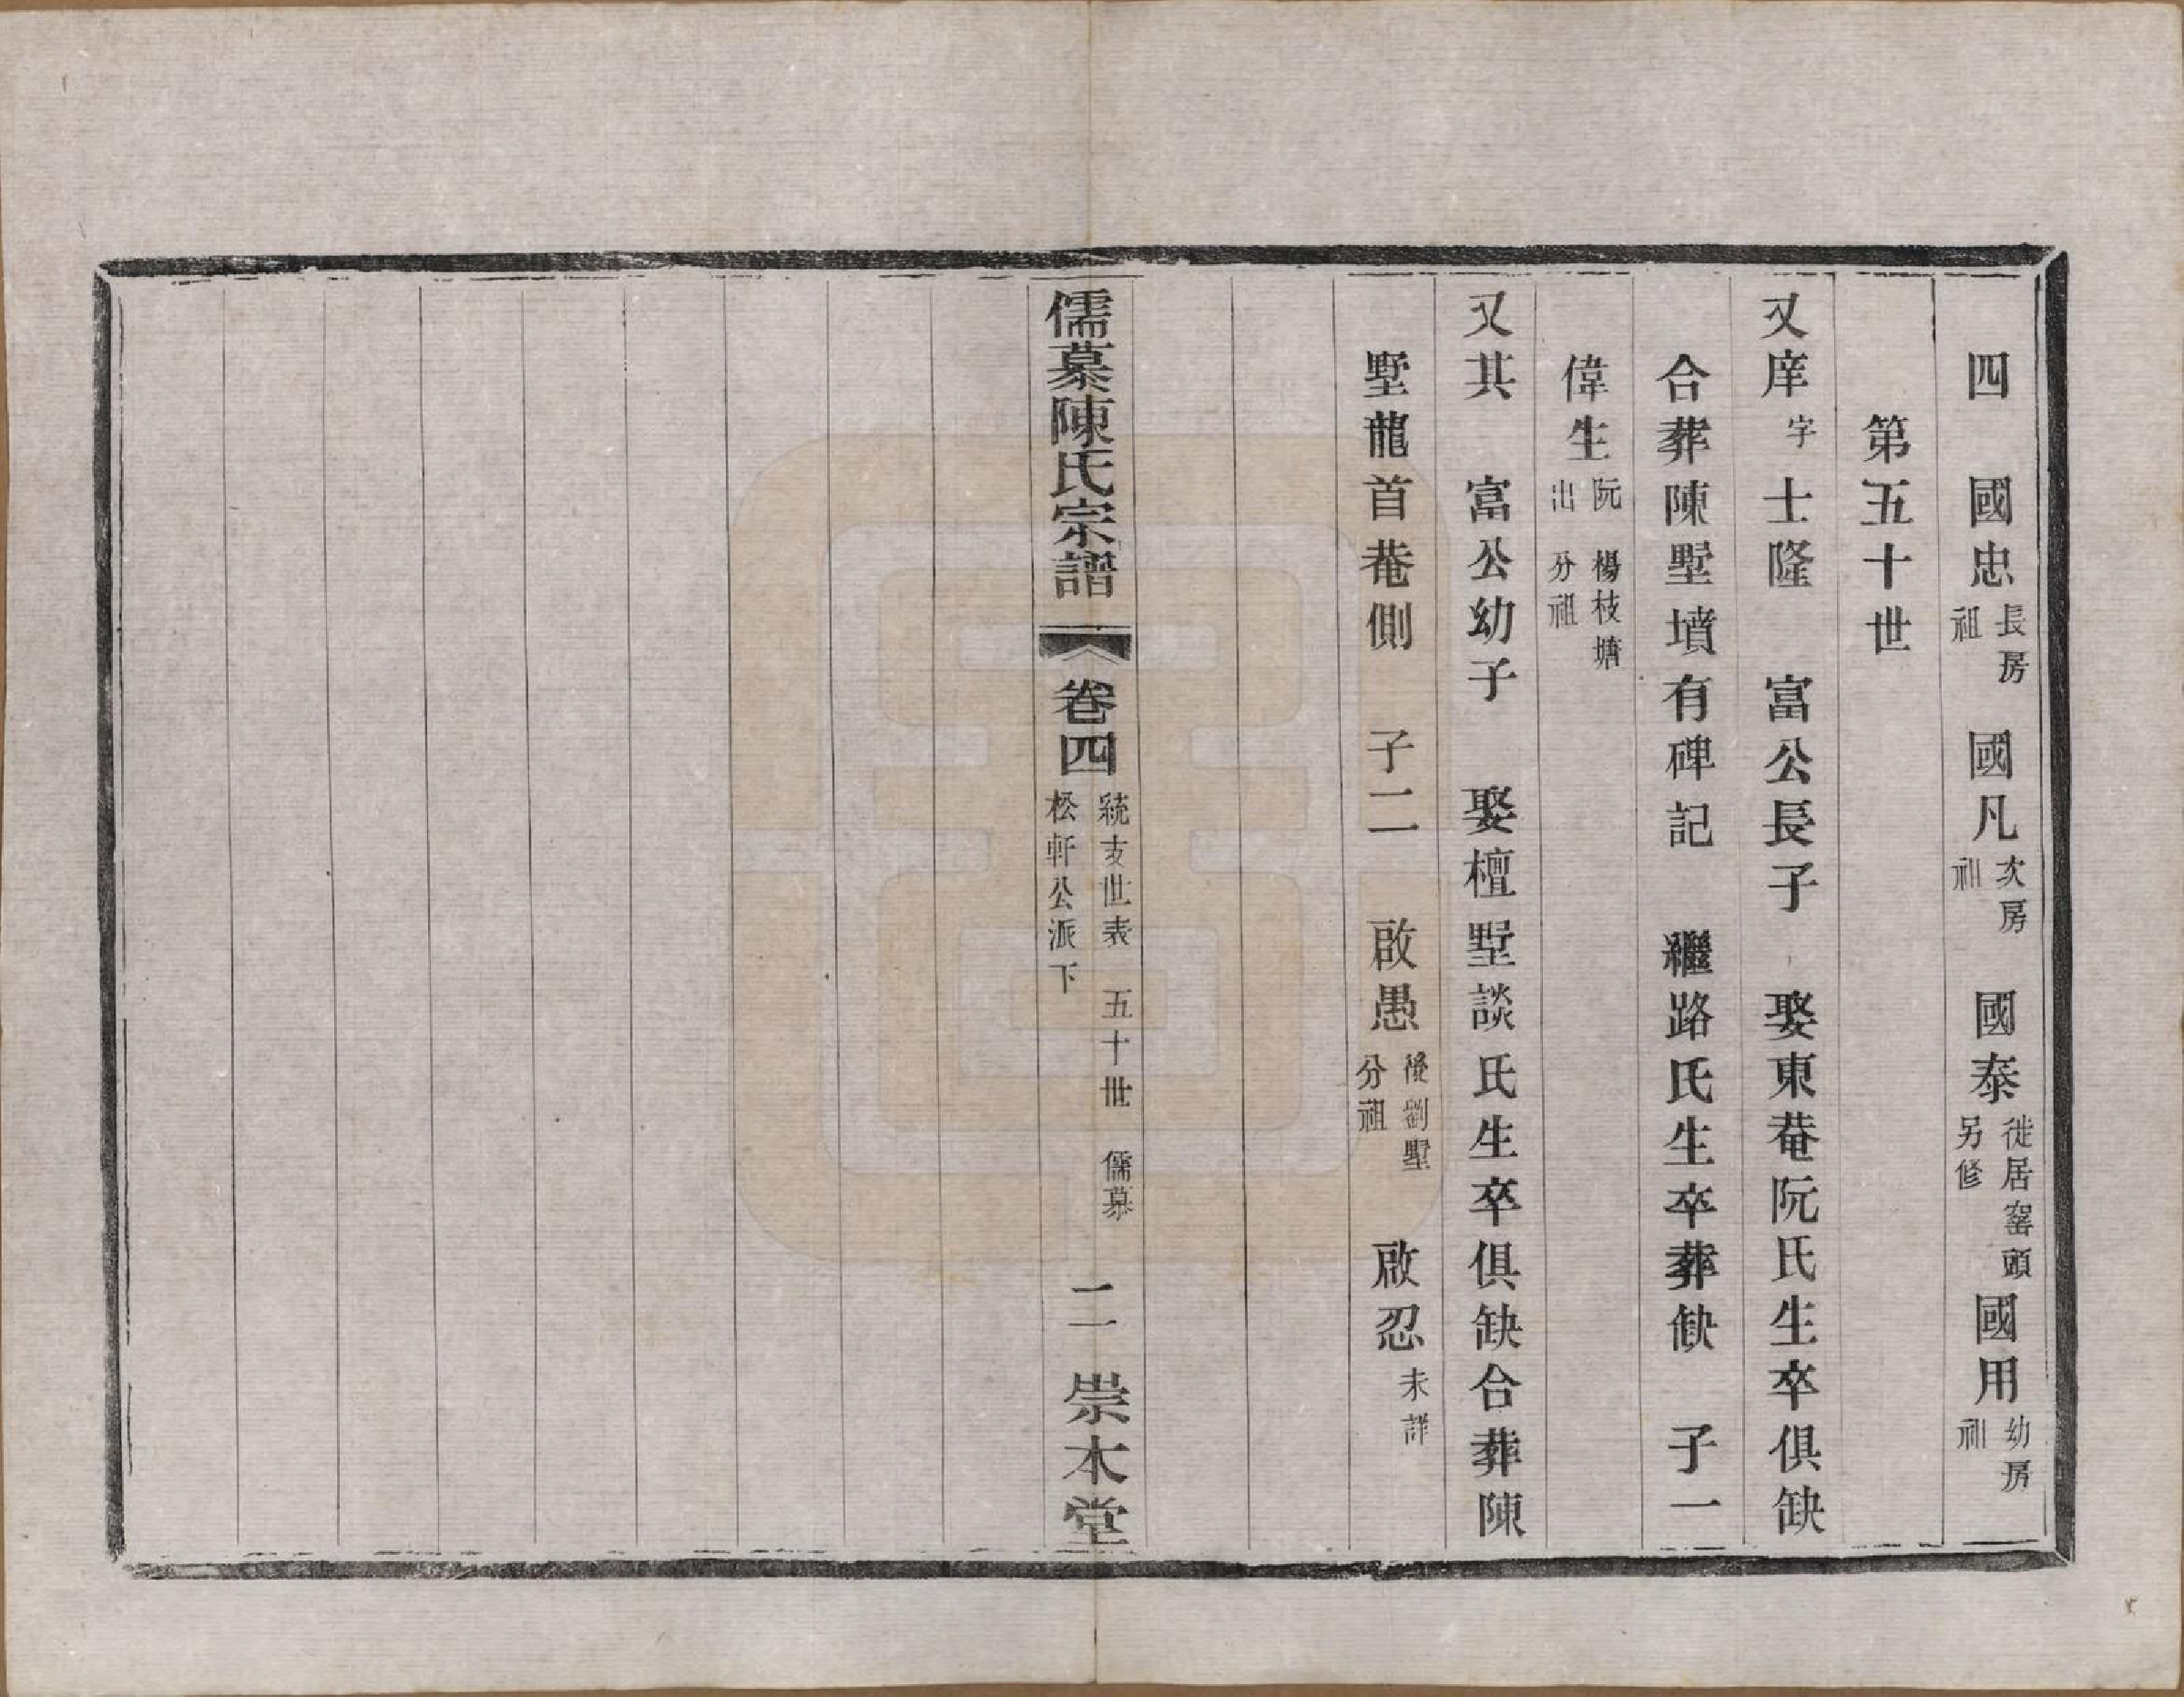 四　國忠長房祖　國凡次房祖　國泰徙居窰頭另修　國用幼房祖
第五十世
又庠字　士隆　富公長子　娶東菴阮氏生卒俱缺
合葬陳墅墳有碑記　繼路氏生卒葬缺　子一
偉生阮出　楊枝塘分祖
又其　富公幼子　娶檀墅談氏生卒俱缺合葬陳
墅龍首菴側　子二　啟愚後劉墅分祖　啟忍未詳
儒慕陳氏宗譜　卷四　統支世表松軒公派下　五十世　儒慕　二　崇本堂